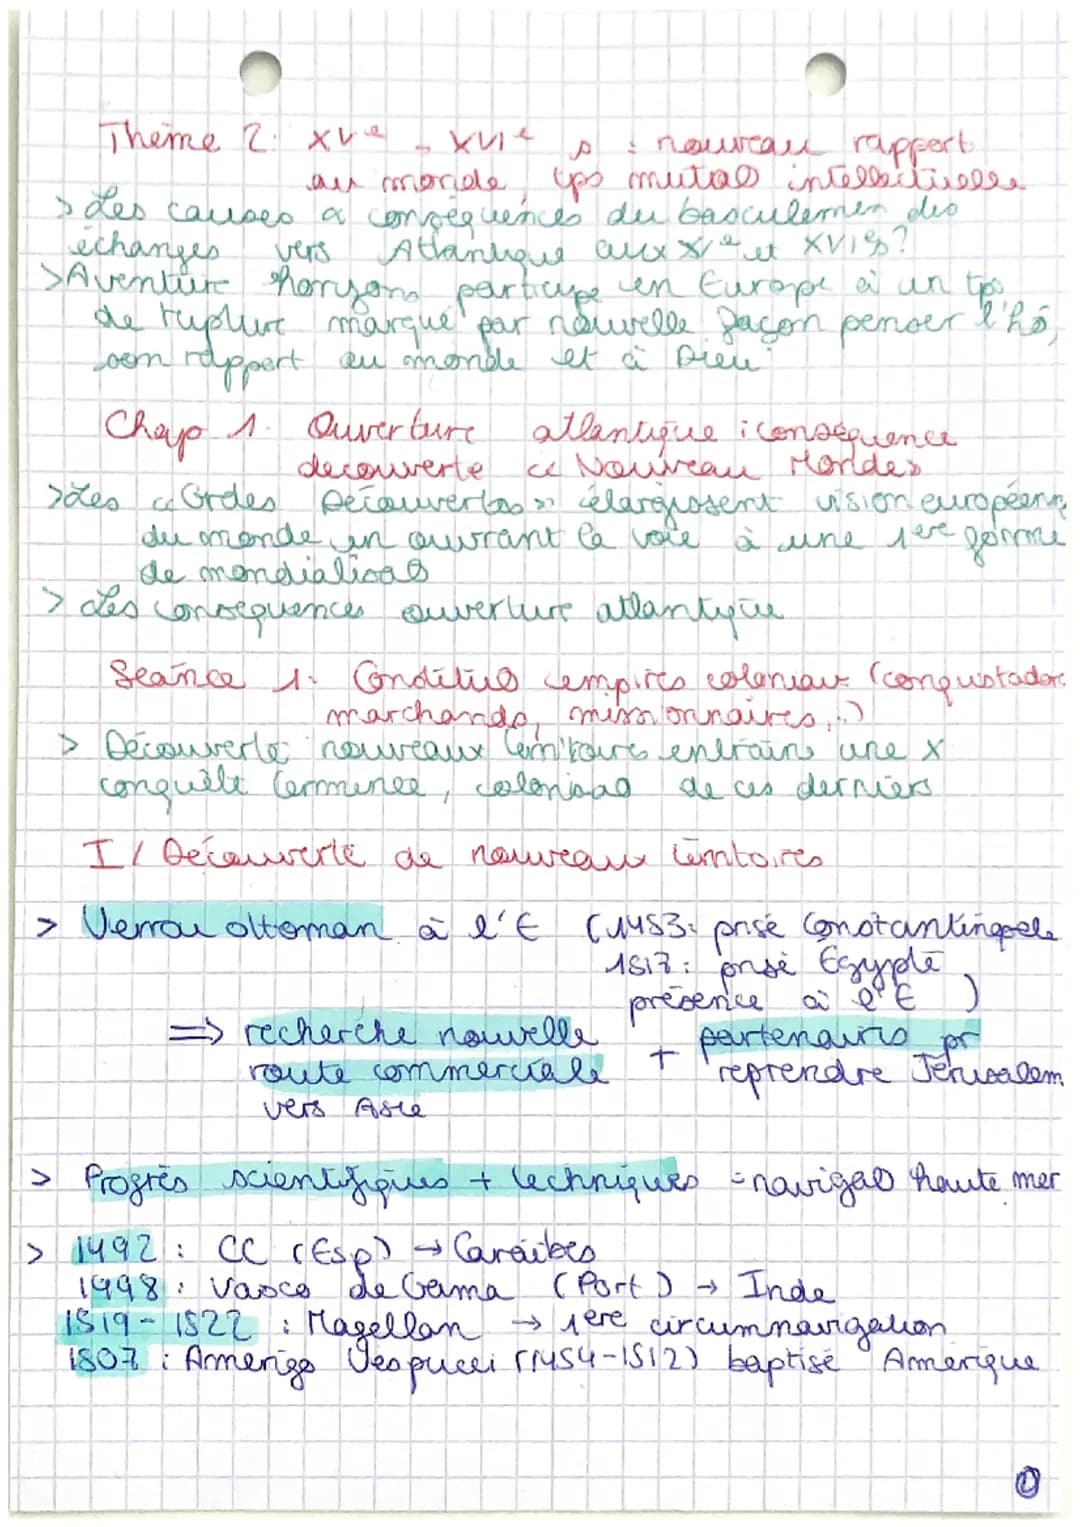 Thème 2: XVe - XVIe s : nouveau rapport
au monde, tps mutat° intellectuelle
> Les causes & conséquences du basculemen des
échanges vers Atlantique aux XVe et XVIs?
> Aventure horizons participe en Europe à un tps
de rupture marqué par nouvelle façon penser l'hô,
son rapport au monde et à Dieu.
Chap 1. Ouverture atlantique : conséquence
decouverte « Nouveau Mondes
> Les « Grdes Découvertes » élargissent vision européenne
du monde en ouvrant la voie à une 1ère forme
de mondialisa°
> Les consequences ouverture atlantique
Séance 1: Constitu° empires coloniaux (conquistador
marchands, missionnaires,..)
> Découverte nouveaux territoires entraine une x
conquête terminée, colonisa° de ces derniers
I / Découverte de nouveaux territoires
> Verrou ottoman à l'E (1453: prise Constantinople
1517: prise Egypte
présence à l'E )
=> recherche nouvelle + partenaires pr
route commerciale reprendre Jérusalem
vers Asie
> Progrès scientifiques + techniques = naviga° haute mer
> 1492 : CC (Esp) → Caraïbes
1498 : Vasco de Gama (Port) → Inde
1519 - 1522 : Magellan → 1ère circumnavigation
1507 : Amerigo Vespucci (1454-1512) baptise Amérique
1